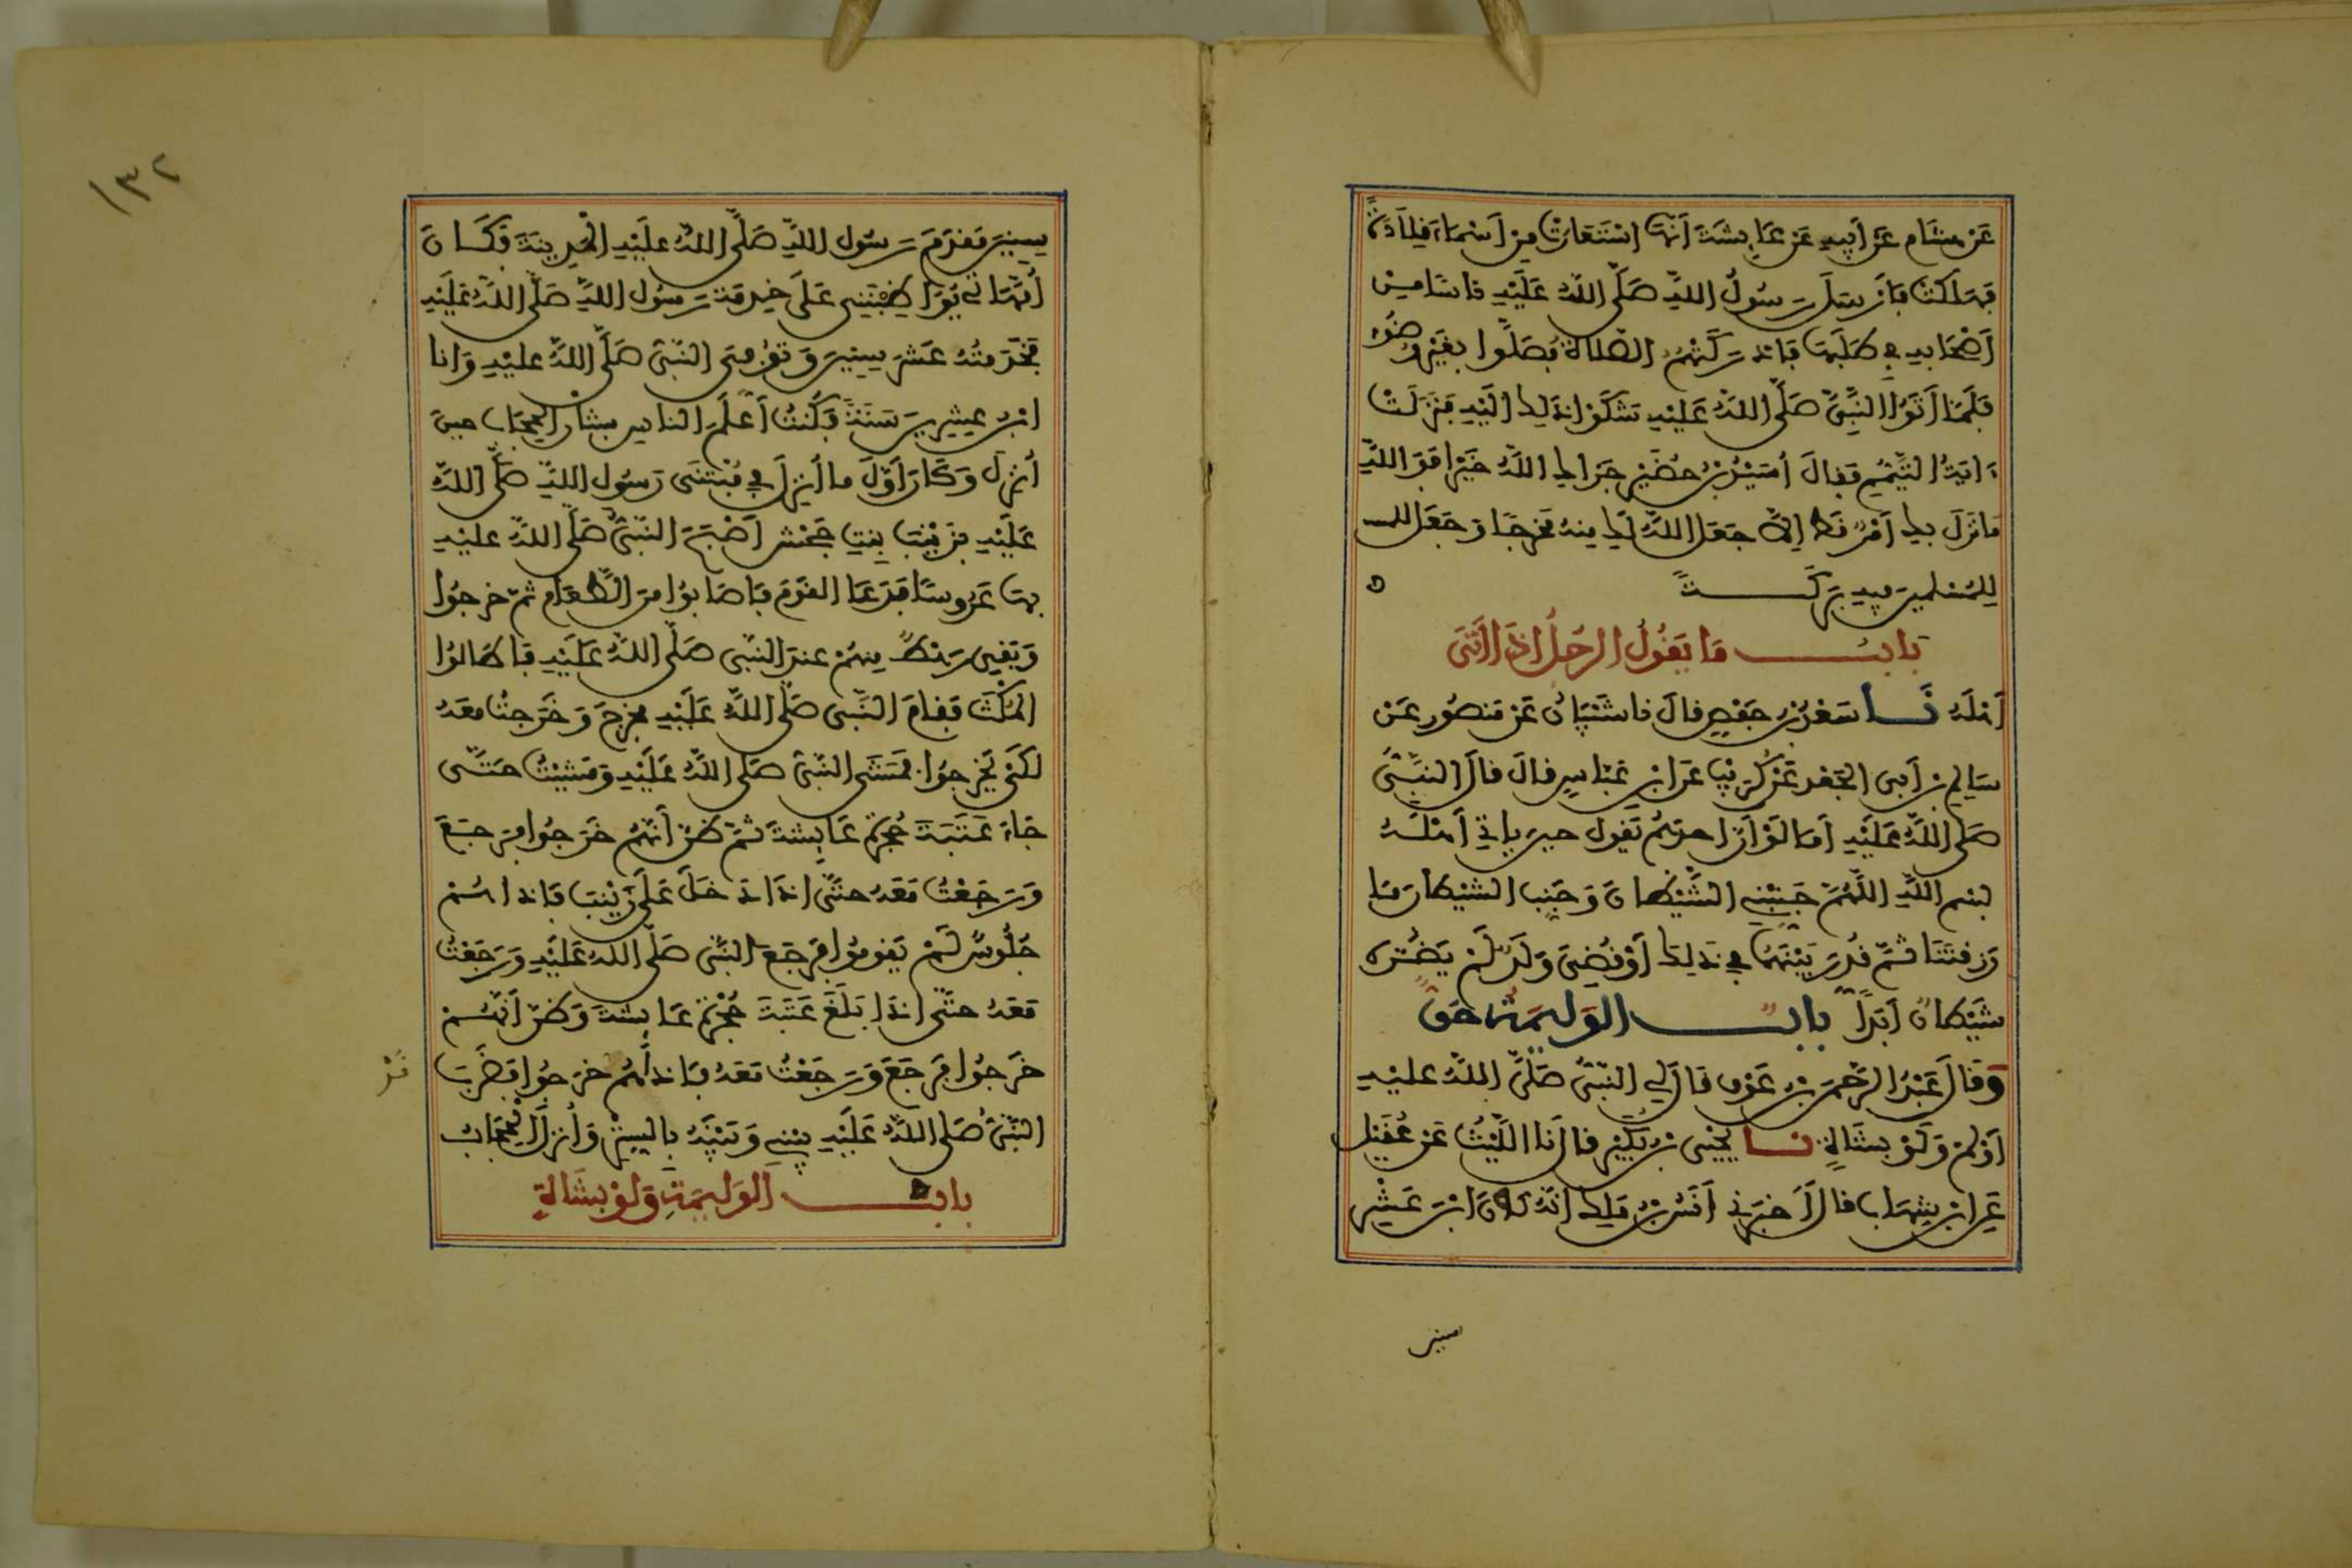 عَن هشَام عَن أبيهِ عَن عَايشَةَ أنّهَا اسْتَعَارَتْ مِن أسْمَاءَ قِلَادَةً
فهَلكَتْ فأرسَلَ رسُولُ اللهِ صَلَّى اللهُ عَلَيْهِ ناسًا مِن
أصْحَابهِ في طَلَبهَا فأدرَكَتْهُم الصَّلاةُ فصَلَّوا بغَيْرِ وضُوء
فَلَمّا أتَوُا النَّبِيَّ صَلَّى اللهُ عَلَيْهِ شَكَوْا ذَلِكَ إلَيْهِ فَنَزَلَتْ
ءَايَةُ التَّيَمُّمِ فَقالَ أُسَيْدُ بْنُ حُضَيْرٍ جَزَاكِ اللهُ خَيْرًا فَوَاللهِ
مَا نَزَلَ بكِ أَمْرٌ قَطُّ إلّا جَعَلَ اللهُ لَكِ مِنهُ مَخرَجًا وَجَعَلَ للـ
لِلمُسْلمِينَ فِيهِ بَرَكَةً
بَابُ مَا يَقُولُ الرَّجُلُ إذَا أَتَى
أَهْلَهُ نَا سَعْدُ بْنُ حَفْصٍ قالَ نا شَيْبَانُ عَن مَنصُورٍ عَن
سَالِمِ بْنِ أَبي الجَعْدِ عَن كُرَيْبٍ عَن ابْنِ عَبّاسٍ قالَ قالَ النّبِيُّ
صَلَّى اللهُ عَلَيْهِ أمَا لَوْ أنَّ أحدَهُم يَقُولُ حِينَ يأتي أَهْلَهُ
بسْمِ اللهِ اللَّهُمَّ جَنِّبْنِي الشَّيْطانَ وَجَنِّبِ الشيْطانَ مَا
رَزقتَنَا ثمَّ قُدِّرَ بَيْنَهُمَا في ذَلِكَ أوْ قُضِيَ وَلَدٌ لَمْ يَضُرَّه
شَيْطانٌ أَبَدًا بابٌ الوَلِيمَةُ حَقٌّ
وَقالَ عَبْدُ الرَّحْمَنِ بْنُ عَوْفٍ قالَ لي النّبِيُّ صَلَّى اللهُ عَليْهِ
أَوْلِمْ وَلَوْ بشَاةٍ نَا يَحْيَى بْنُ بُكَيْرٍ قالَ نا اللَّيْثُ عَن عُقَيْلٍ
عَن ابْنِ شِهَابٍ قالَ أَخبَرَني أَنَسُ بْنُ مَلِكٍ أنّهُ كَانَ ابْنَ عَشْرِ
سنين
١٣٢
سِنِينَ مَقدَمَ رَسُولِ اللهِ صَلَّى اللهُ عَلَيْهِ المَدِينَةَ فَكَانَ
أُمَّهَاتي يُوَاظِبْنَنِي عَلَى خِدمَةِ رَسُولِ اللهِ صَلَّى اللهُ عَلَيْهِ
فَخَدَمتُهُ عَشرَ سِنِينَ وَتُوُفِّيَ النّبيُّ صَلَّى اللهُ عَليْهِ وَأنا
ابْنُ عِشرِينَ سَنَةً فَكُنتُ أَعْلَمَ الناسِ بشَأنِ الحِجَابِ حِينَ
أُنزِلَ وَكانَ أوَّلَ ما أُنزِلَ في مُبْتَنَى رَسُولِ اللهِ صَلَّى اللهُ
عَلَيْهِ بزَيْنَبَ بِنتِ جَحْشٍ أَصْبَحَ النّبيُّ صَلَّى اللهُ عَليْهِ
بهَا عَرُوسًا فَدَعَا القَوْمَ فأصَابُوا مِنَ الطَّعَامِ ثمّ خرَجُوا
وَبَقِيَ رَهْطٌ مِنهُمْ عندَ النّبيِّ صَلَّى اللهُ عَلَيْهِ فأطَالوُا
المُكْثَ فَقامَ النّبيُّ صَلَّى اللهُ عَلَيْهِ فخَرَجَ وَخَرَجتُ معَهُ
لكَيْ يَخْرجُوا فمَشَى النّبيُّ صَلَّى اللهُ عَلَيْهِ وَمَشَيْتُ حتَّى
جَاءَ عَتَبَةَ حُجْرَةِ عَايشَةَ ثمّ ظَنَّ أنّهُمْ خَرَجُوا فرَجَعَ
وَرَجَعْتُ مَعَهُ حتَّى إذَا دَخَلَ عَلَى زَيْنَبَ فَإذا هُمْ
جُلُوسٌ لَمْ يَقومُوا فرَجَعَ النّبيُّ صَلَّى اللهُ عَلَيْهِ وَرَجَعْتُ
مَعَهُ حتَّى إذَا بَلَغَ عَتَبَةَ حُجْرَةِ عَايشَةَ وَظَنَّ أنّهُمْ
خَرَجُوا فرَجَعَ وَرَجَعْتُ مَعَهُ فإذا هُمْ خرَجُوا فَضَرَبَ
النّبيُّ صَلَّى اللهُ عَلَيْهِ بَيْنِي وَبَيْنَهُ بِالسِّتْرِ وَأُنزِلَ الحِجَابُ
بابُ الوَلِيمَةِ وَلَوْ بشَاةٍ